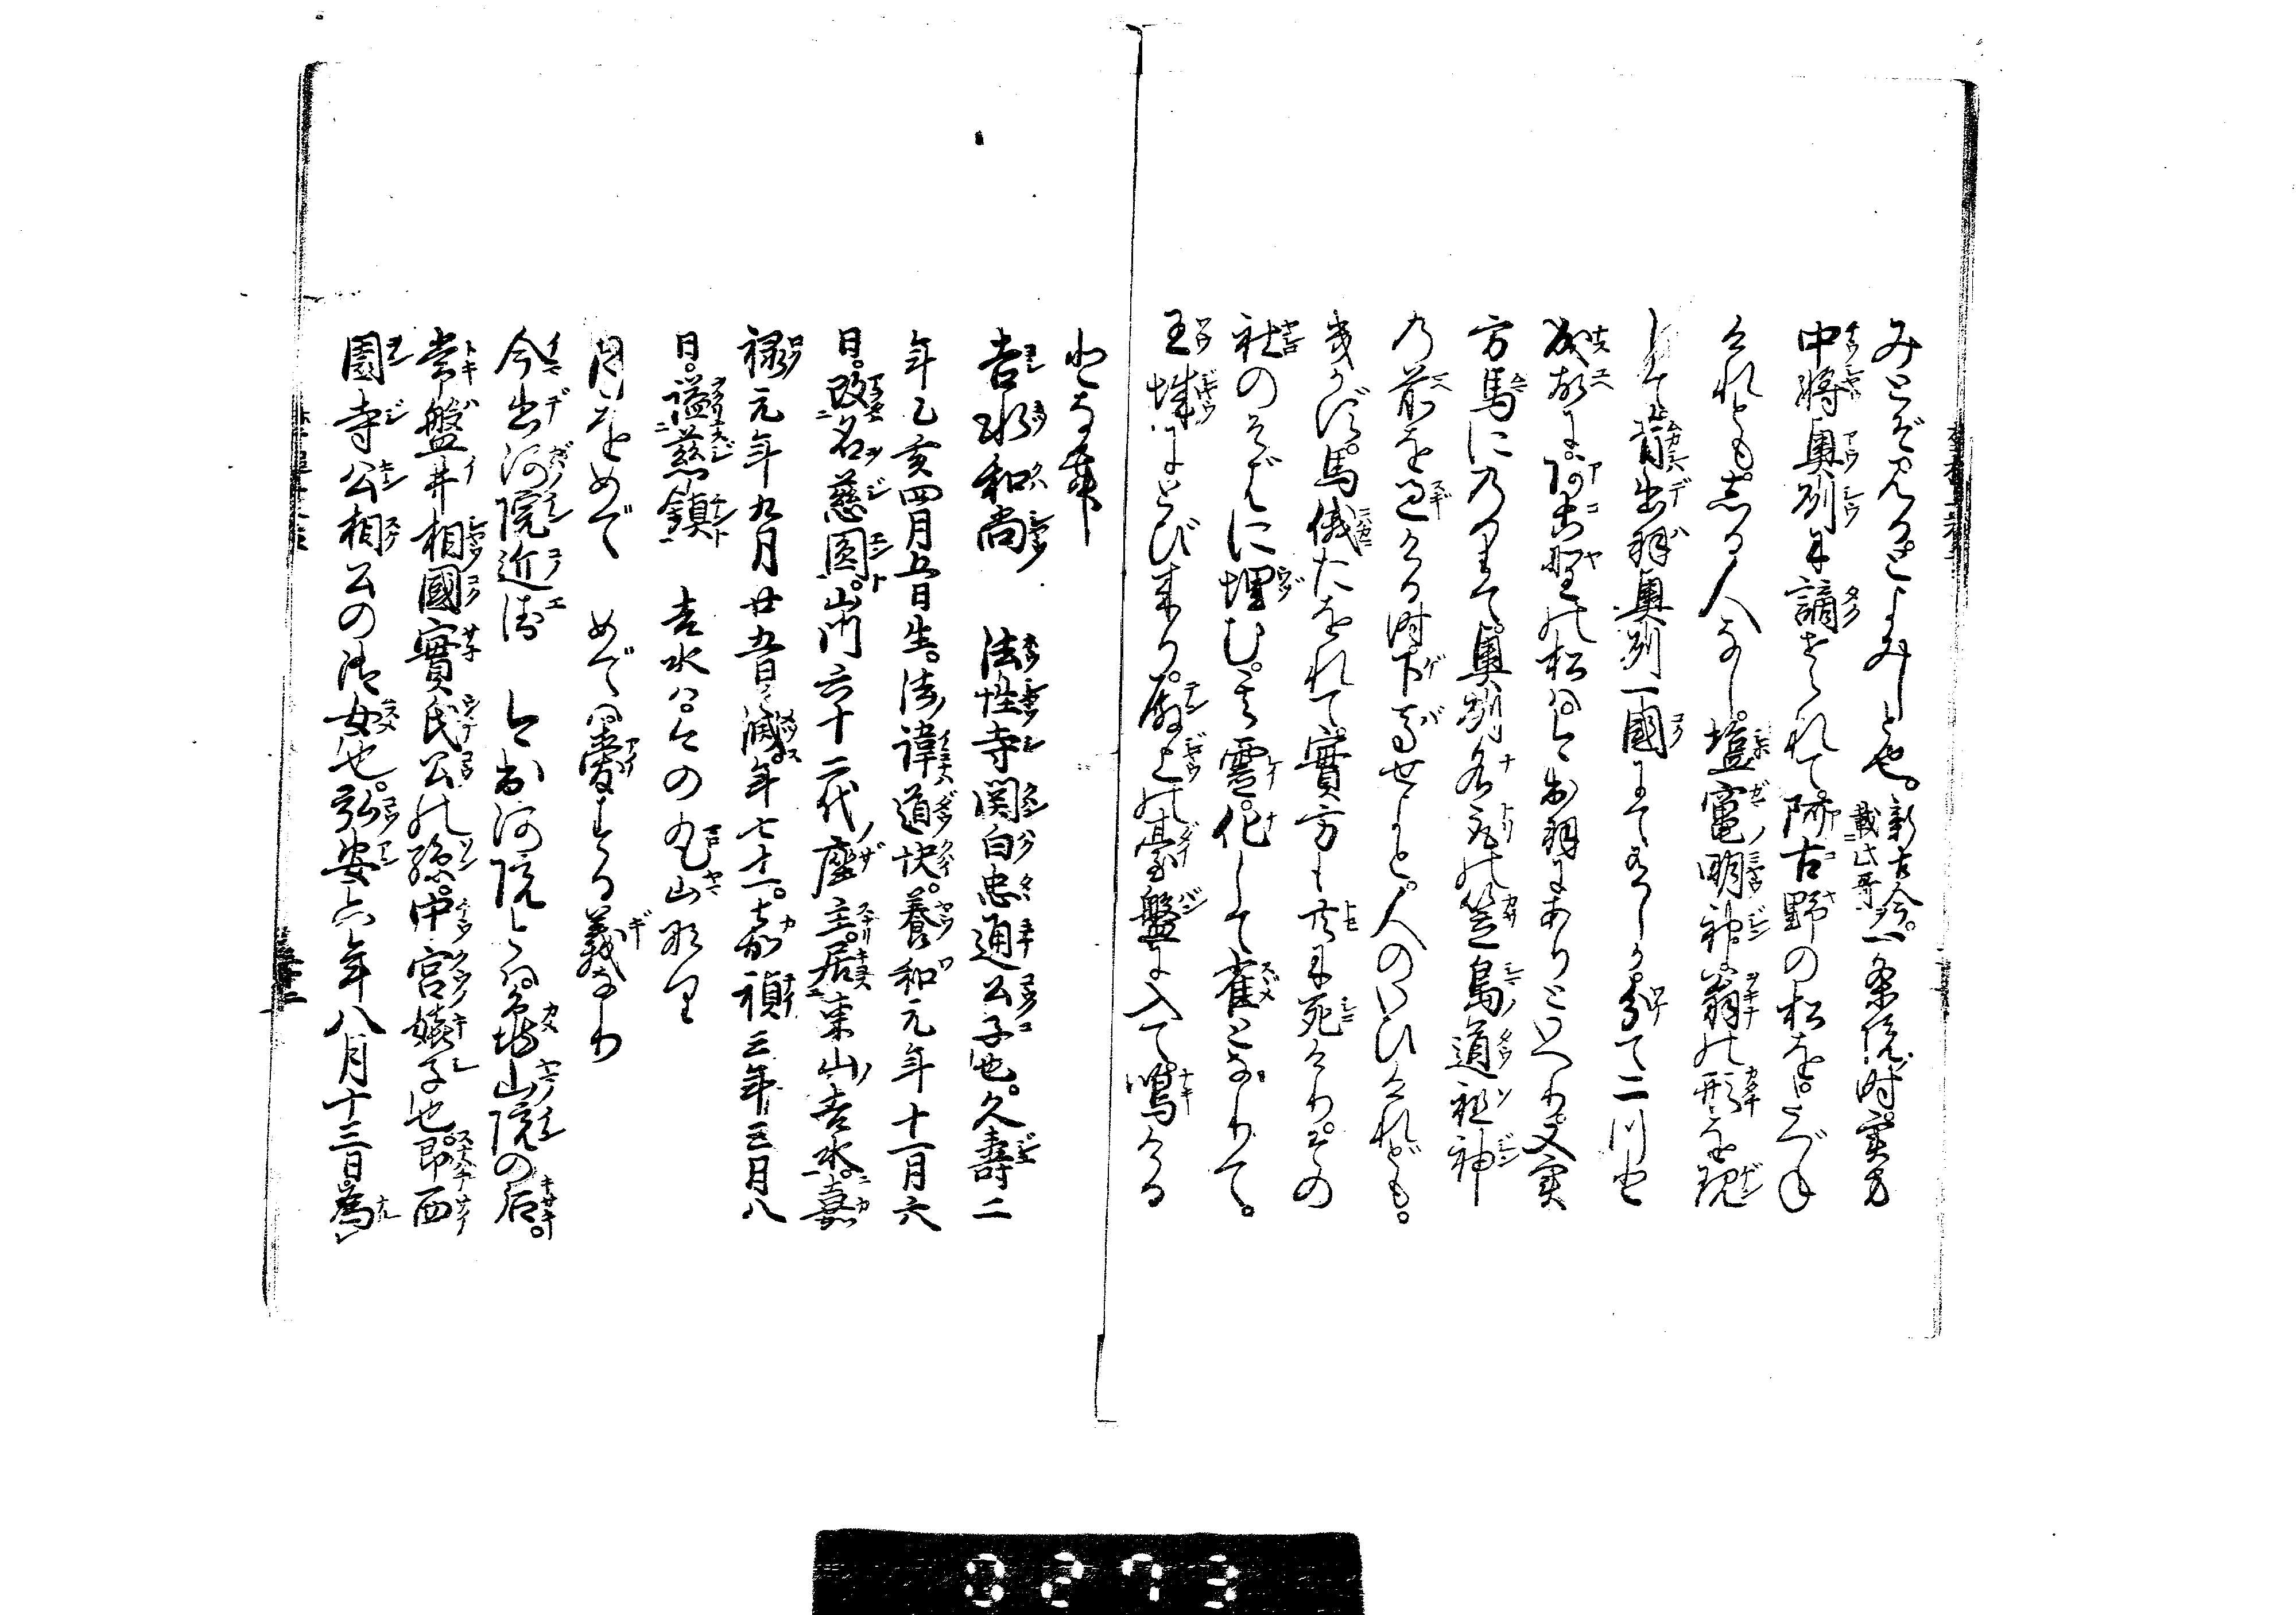 みとぞ見るとよみしと也。新古今。載此哥。一条院ノ時。実方
中将奥州に謫せられて。阿古野の松を。たづね
けれども。しる人なし。塩竃明神。翁の形を現
して昔出羽奥州一國にて有しが。分て二川也
故に。阿古野の松は今出羽にありといへり。又実
方馬にのりて。奥州名取の笠島道祖神
の前を過ける時。下馬せよと。人のいひけれども。
きかず。馬俄たをれて。實方も共に死けり。その
社のそばに埋む。其霊。化して雀となりて。
王城にとび来り。殿上の臺盤に入て。鳴ける
となん
吉水和尚　法性寺関白忠通公子也。久壽二
年乙亥四月五日生。法諱道快。養和元年十一月六
日。改名慈圓。山門六十二代座主。居東山吉水。嘉
禄元年九月廿五日滅。年七十一。嘉禎三年三月八
日。謚慈鎮　吉水は。今の丸山なり
月をめで　めでは愛する義なり
今出河院近衛　今出河院とは亀山院の后。
常盤井相國實氏公の孫。中宮嬉子也。即西
園寺公相公の御女也。弘安六年八月十三日。為